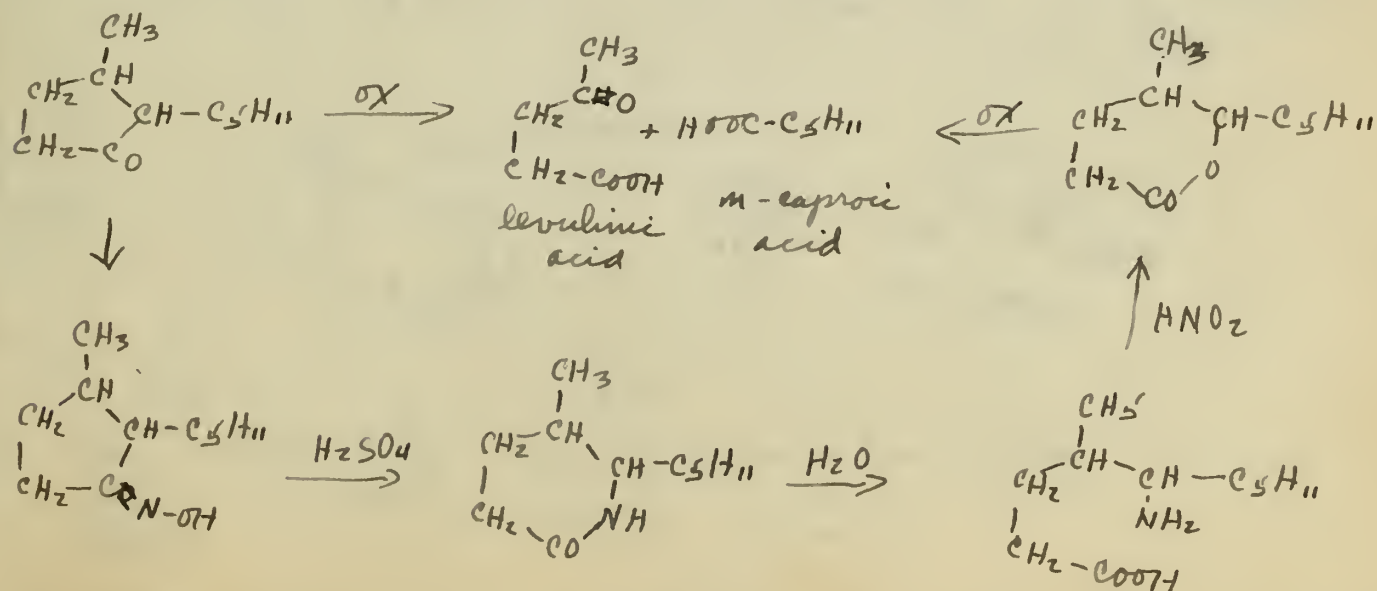 CH3
CH
CH2
CH-C5H11
CH2-CO
OX
CH3
CO
CH2
CH2-COOH
levulinic
acid
+ HOOC-C5H11
n-caproic
acid
OX
CH3
CH
CH2
CH-C5H11
O
CH2
CO
HNO2
CH3
CH
CH2
CH-C5H11
CH2-C
N-OH
H2SO4
CH3
CH
CH2
CH-C5H11
CH2
NH
CO
H2O
CH3
CH
CH2
CH-C5H11
NH2
CH2-COOH